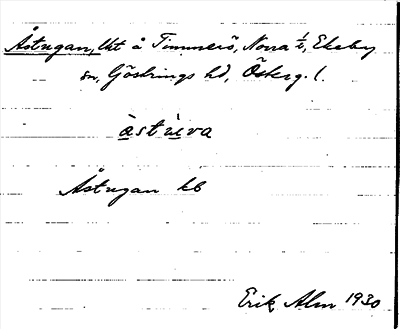 Åstugan, lht å Timmerö, Norra f, Ekeby
sn, Göstrings hd, Österg. l.
åstu̇va
Åstugan kb
Erik Alm 1930